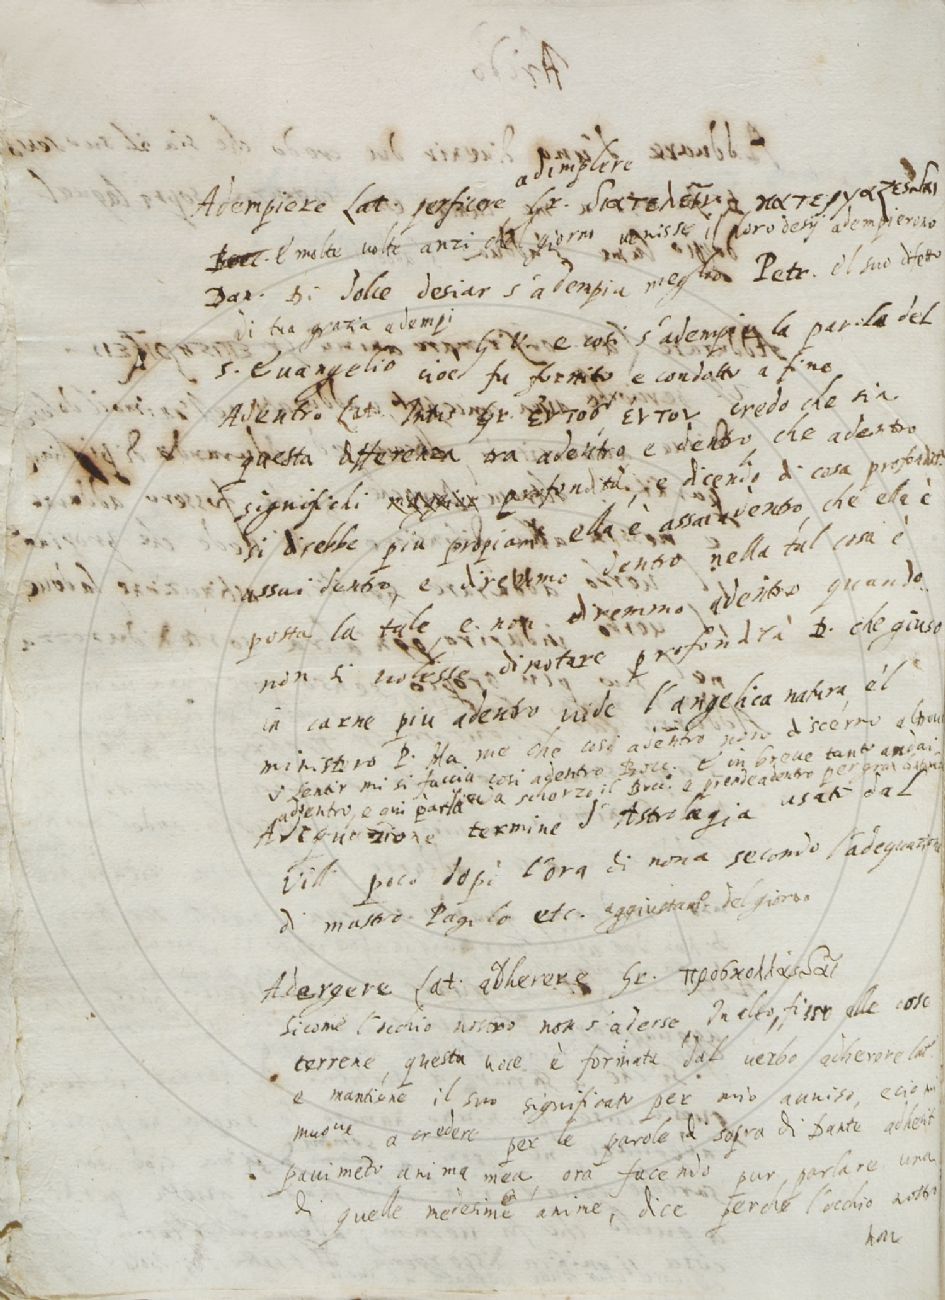 adimplere
Adempiere Lat. perficere Gr. διατελεῖν κατεργάζεσθαι
Bocc. E molte volte anzi che giorno venisse il loro desij adempierono
Dan. Di dolce desiar s'adempia meglio Petr. el suo difetto
di tua grazia adempi
G. V. e così s'adempiè la parola del
S. Evangelio cioè fu fornito e condotto a fine
Adentro Lat. Intus Gr. ἐντός ἐντον credo che sia
questa differenza tra adentro e dentro che adentro
significhi profondità, e dicendo di cosa profonda
si direbbe più propiam. ella è assai adentro, che ella è
assai dentro, e diremmo dentro nella tal cosa è
posta la tale, e non diremmo adentro quando
non si volesse dinotare profondità D. che giuso
in carne più adentro vide l'angelica natura, e'l
ministero P. Ma me che così adentro non discerno
sentir mi si faccia così adentro Bocc. E in breve tanto andai
adentro, e qui parla a scherzo il Bocc. e prende adentro per
Adequazione termine d'Astrologia usato dal
Vill. poco dopo l'ora di nona secondo l'adequazione
di mastro Pagolo etc. aggiustam. del giorno
Adergere Lat. adherere Gr. προσκολλᾶσθαι
Sicome l'occhio nostro non s'aderse In alto, fisso alle cose
terrene, questa voce è formata dal verbo adherere Lat.
e mantiene il suo significato per mio avviso, e ciò mi
muove a credere per le parole di sopra di Dante adhesit
pavimento anima mea, ora facendo pur parlare una
di quelle medesime anime, dice perchè l'occhio nostro
non